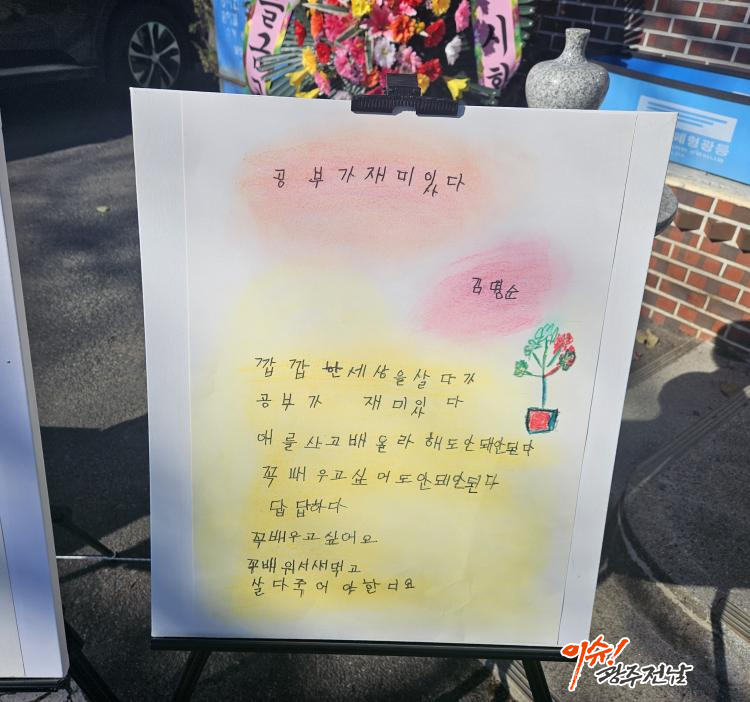 공 부 가 재 미 있 다
김 명 순
깝 깝 한 세 상 을 살 다 가
공 부 가 재 미 있 다
애 를 쓰 고 배 울 라 해 도 안 돼 안 된 다
꼭 배 우 고 싶 어 도 안 돼 안 된 다
답 답 하 다
꼭 배 우 고 싶 어 요
꼭 배 워 서 써 먹 고
살 다 죽 어 야 한 디 요
이슈!
광주전남